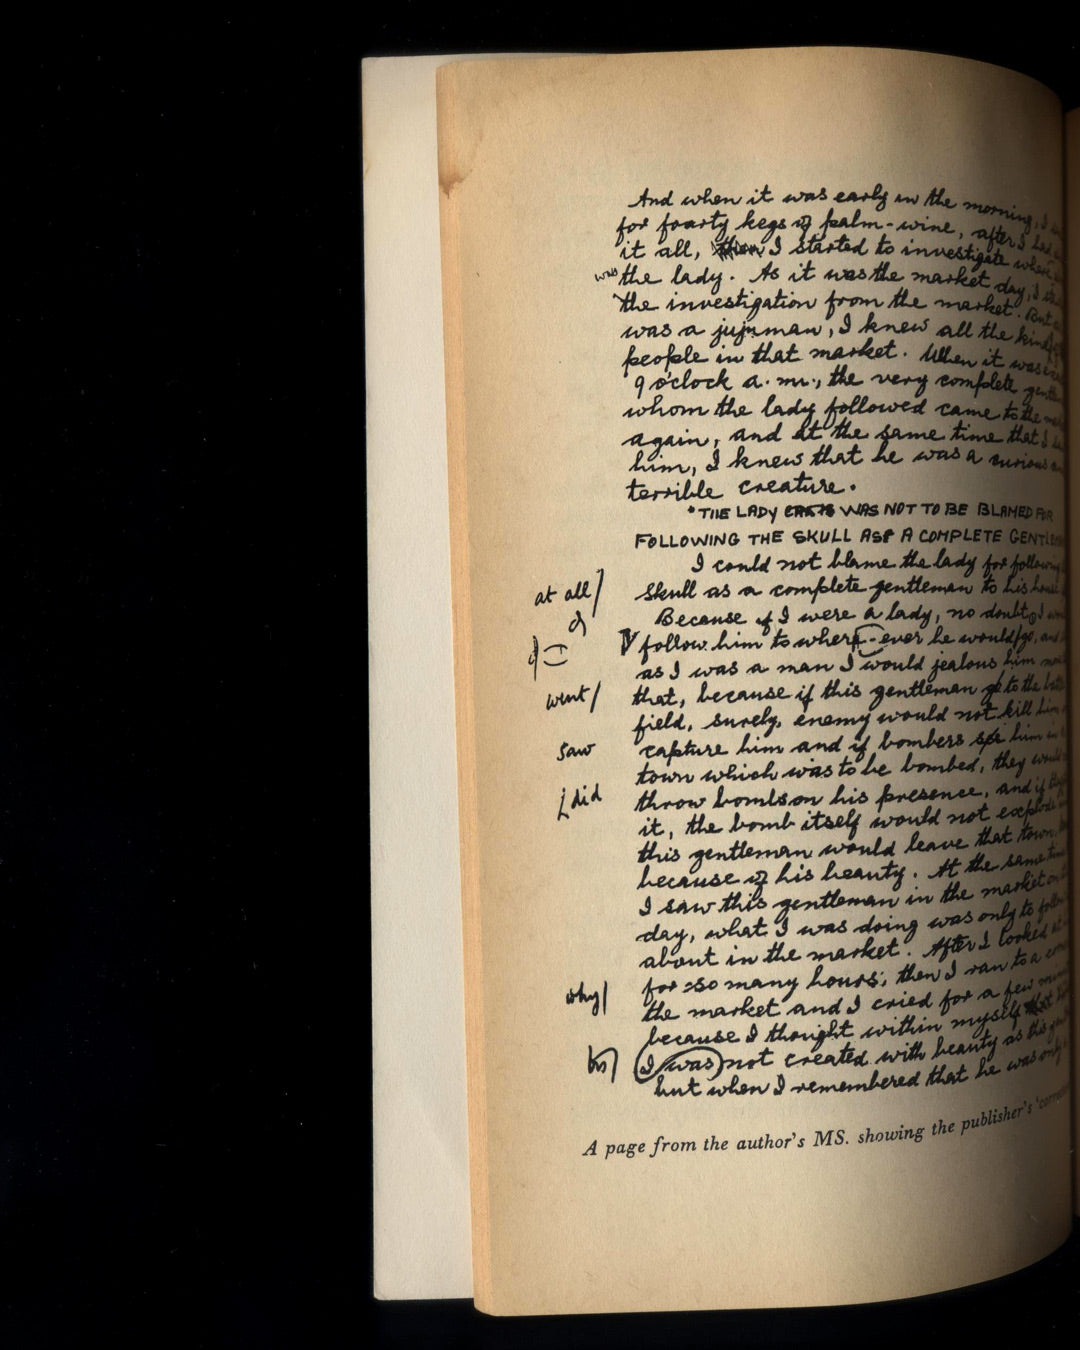 And when it was early in the morning, I
for fourty kegs of palm-wine, after I had
it all, then I started to investigate where
was
the lady. As it was the market day, I
the investigation from the market. But
was a jujuman, I knew all the kind of
people in that market. When it was
9 o'clock a.m., the very complete
whom the lady followed came to the
again, and at the same time that I
him, I knew that he was a curious
terrible creature.
"THE LADY WAS NOT TO BE BLAMED FOR
FOLLOWING THE SKULL AS A COMPLETE
I could not blame the lady for following
at all
skull as a complete gentleman to his house
Because if I were a lady, no doubt, I
follow him to where-ever he would go, and
as I was a man I would jealous him
went
that, because if this gentleman go to the
field, surely, enemy would not kill him
saw
capture him and if bombers see him in
town which was to be bombed, they would
did
throw bombs on his presence, and if
it, the bomb itself would not explode
this gentleman would leave that town.
because of his beauty. At the same time
I saw this gentleman in the market on
day, what I was doing was only to follow
about in the market. After I looked at
for so many hours, then I ran to a
why
the market and I cried for a few
because I thought within myself that
I was not created with beauty as this
but when I remembered that he was only
A page from the author's MS. showing the publisher's